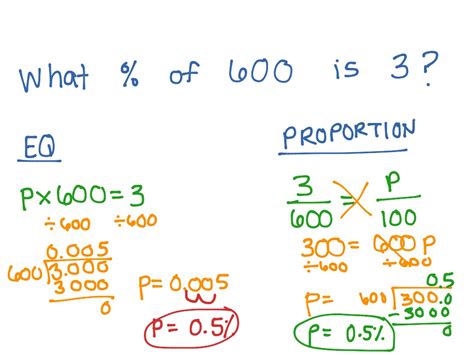 What % of 600 is 3?
EQ
P×600=3
÷600 ÷600
0.005
600 3.000
3000
0
P=0.005
P= 0.5%
PROPORTION
3/600 = P/100
300= 600 P
÷600 ÷600
0.5
P= 600 300.0
-3000
0
P= 0.5%